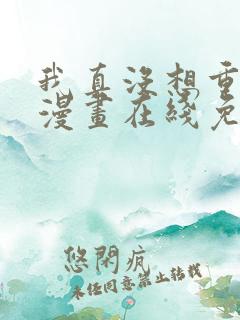 我真没想重
漫畫在綫免
悠閑疯
未经同意禁止转载